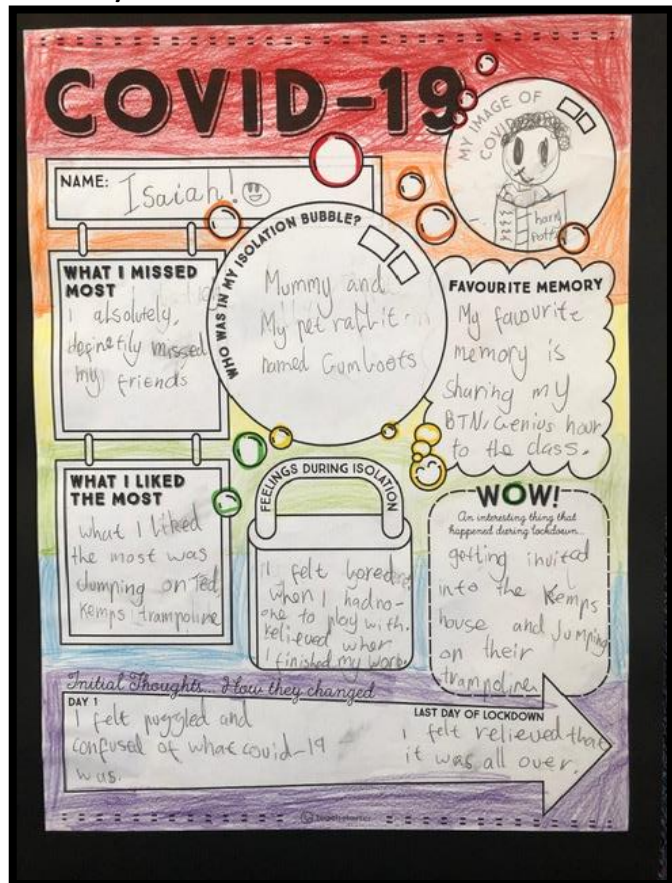 COVID-19
NAME: Isaiah!
MY IMAGE OF
COVID
harry
Potter
WHO WAS IN MY ISOLATION BUBBLE?
Mummy and
My pet rabbit
named Gumboots
WHAT I MISSED
MOST
I absolutely,
definetily missed
my friends
FAVOURITE MEMORY
My favourite
memory is
sharing my
BTN/Genius hour
to the class.
WHAT I LIKED
THE MOST
what I liked
the most was
Jumping on Ted
Kemps trampoline
FEELINGS DURING ISOLATION
I felt bored
when I had no-
one to play with.
Relieved when
I finished my work
WOW!
An interesting thing that
happened during lockdown...
getting invited
into the Kemps
house and Jumping
on their
trampoline
Initial Thoughts... How they changed
DAY 1
I felt puggled and
confused of what covid-19
was.
LAST DAY OF LOCKDOWN
I felt relieved that
it was all over.
teach starter